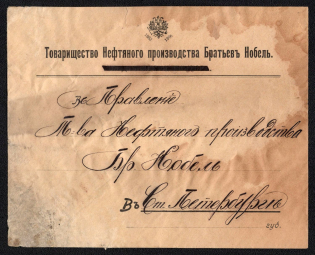 Товарищество Нефтяного производства Братьевъ Нобель.
въ Правленіе
Т-ва Нефтяного производства
Бр Нобель
Въ Ст. Петербургъ
губ.